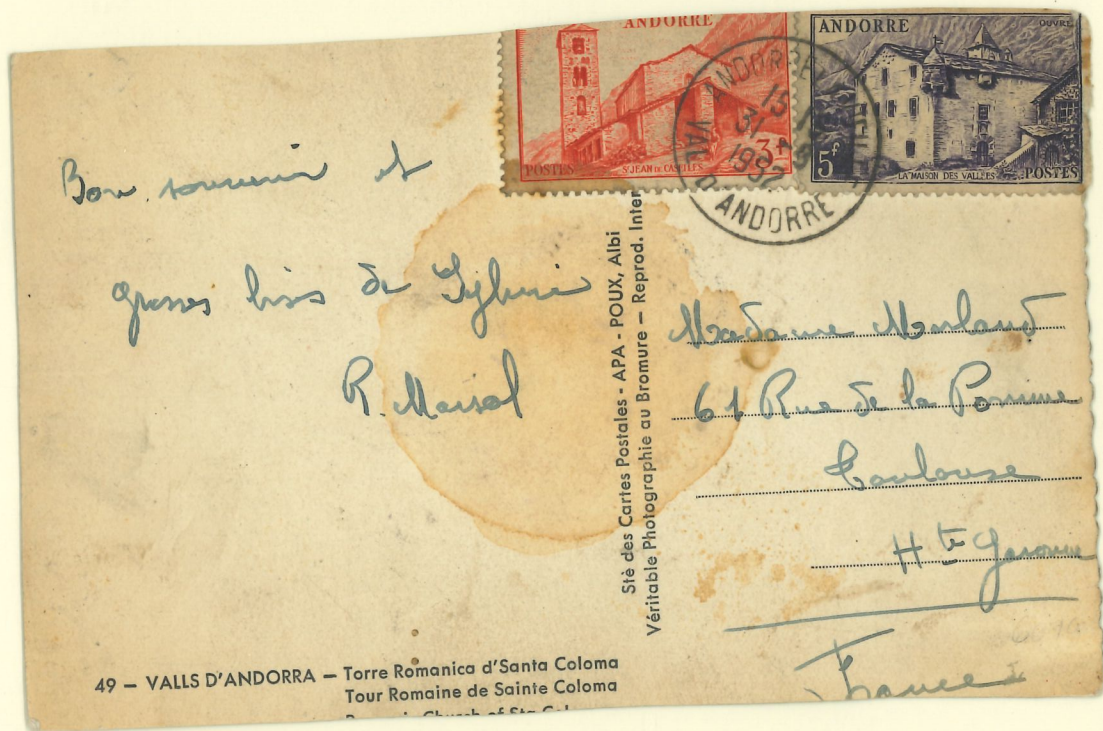 ANDORRE
POSTES
ST JEAN DE CASELLES
3F
ANDORRE
OUVRÉ
5F
LA MAISON DES VALLÉES
POSTES
ANDORRE
31
VAL D'ANDORRE
Bon souvenir et
grosses bises de
R. Marsol
Sté des Cartes Postales - APA - POUX, Albi
Véritable Photographie au Bromure — Reprod. Inter
Madame
61 Rue de la Pomme
Toulouse
Hte Garonne
France
49 — VALLS D'ANDORRA — Torre Romanica d'Santa Coloma
Tour Romaine de Sainte Coloma
Church of Sta